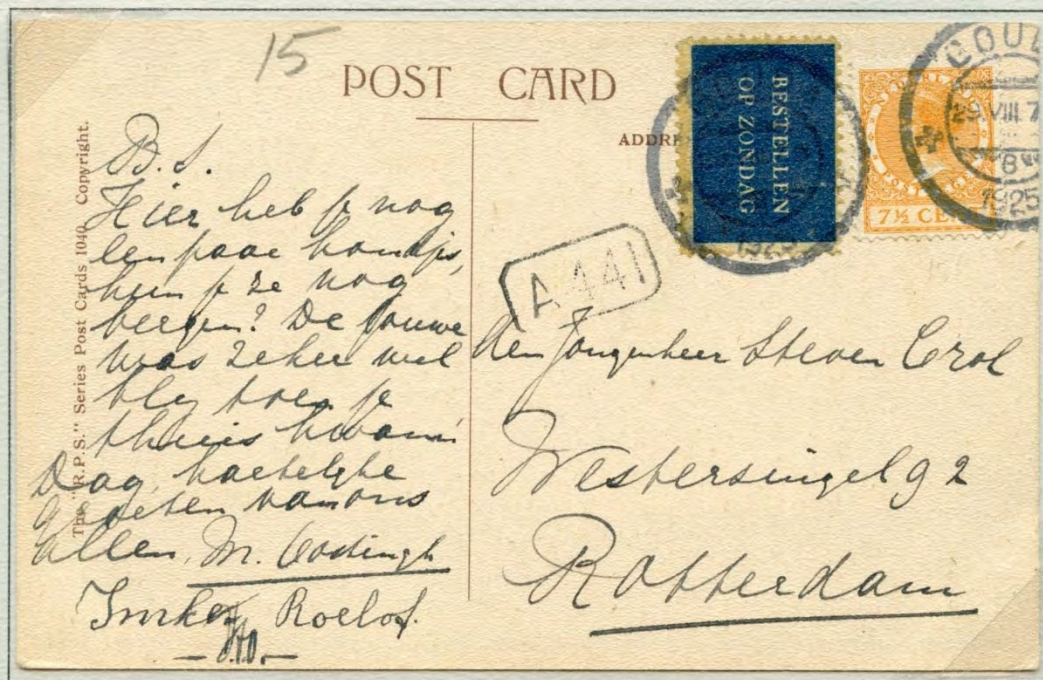 15
POST CARD
ADDRE
BESTELLEN
OP ZONDAG
7½ CEN
GOUD
29.VIII 7
1925
1925
A 441
The "R.P.S." Series Post Cards 1040 Copyright.
B.S.
Hier heb je nog
een paar hondjes,
kun je ze nog
bergen? De
was zeker wel
bly toen je
thuis kwam.
Dag, hartelyke
groeten van ons
allen, M.
Roelof.
Den Jongenheer Steven Crol
Westersingel 92
Rotterdam